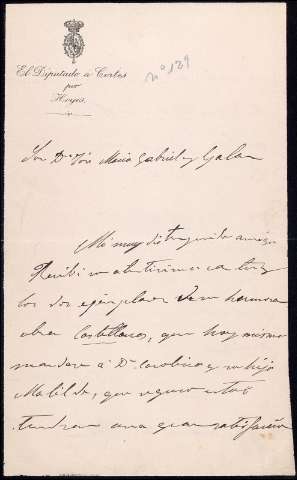 El Diputado á Cortes
por
Hoyos.
nº 139
Sor Dn José María Gabriel y Galan
Mi muy distinguido amigo
Recibí su atentísima carta y
los dos ejemplares de su hermosa
obra Castellanas, que hoy mismo
mandaré á Dn Carolino y su hijo
Matilde, que seguro estoy
tendran una gran satisfacción